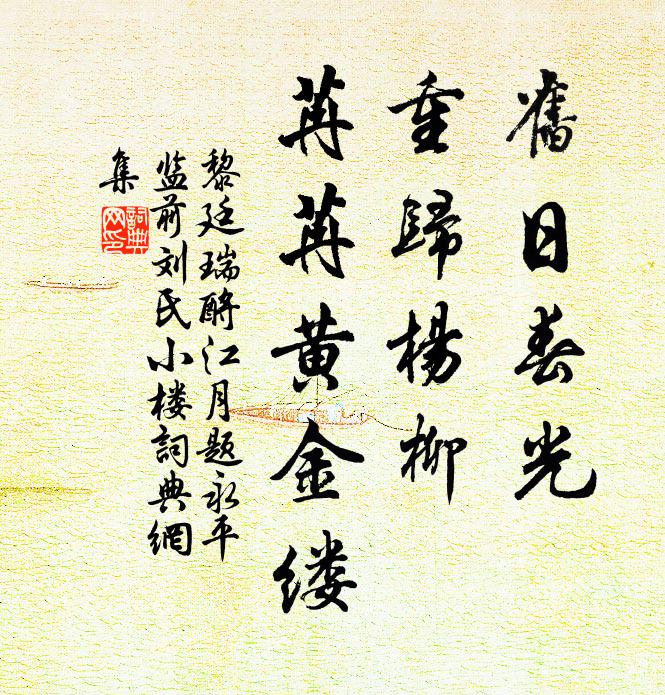 舊日春光
重歸楊柳
苒苒黄金缕
黎廷瑞酹江月题永平
监前刘氏小楼詞典網
集
詞典網印